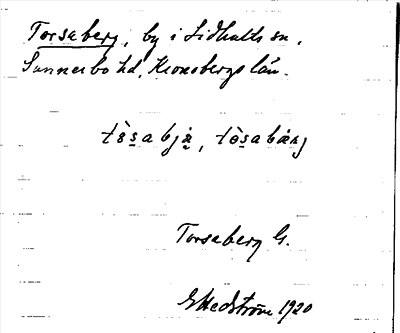 Torsaberg, by i Lidhults sn,
Sunnerbo hd, Kronobergs län.
tòsabjä, tòsabärj
Torsaberg G.
G Hedström 1920